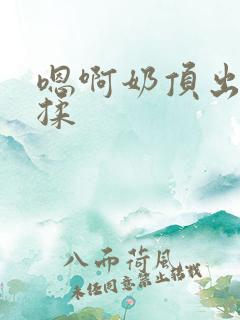 嗯啊奶頂出
揉
八而荷風
未经同意禁止转载